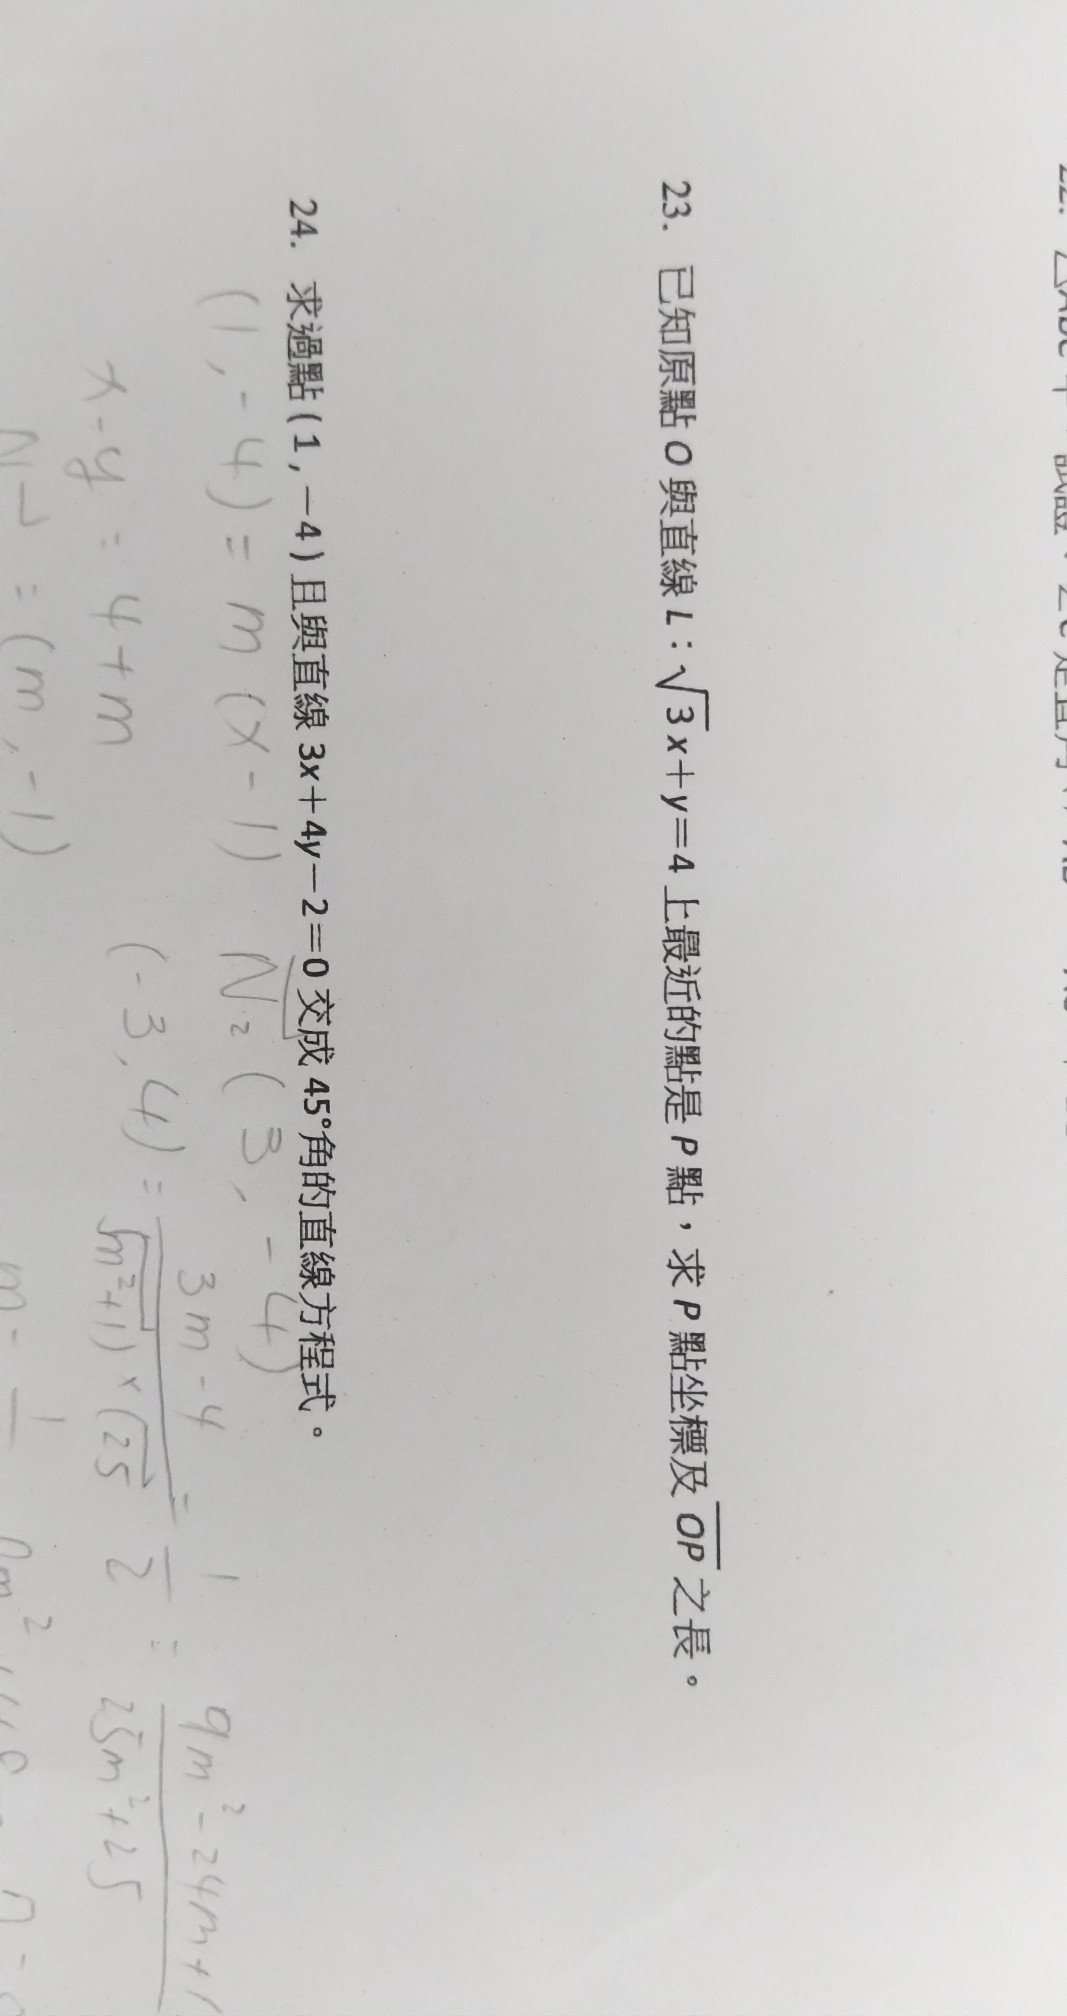 23. 已知原點 O 與直線 L：√3x＋y＝4 上最近的點是 P 點，求 P 點坐標及 OP 之長。
24. 求過點(1,－4)且與直線 3x＋4y－2＝0 交成 45°角的直線方程式。
(1,-4)=m(x-1) N₂(3,-4)
x-y=4+m (-3,4)= 3m-4/√m²+1)×(√25 = 1/2 = 9m²-24m+1/25m²+25
=(m,-1)